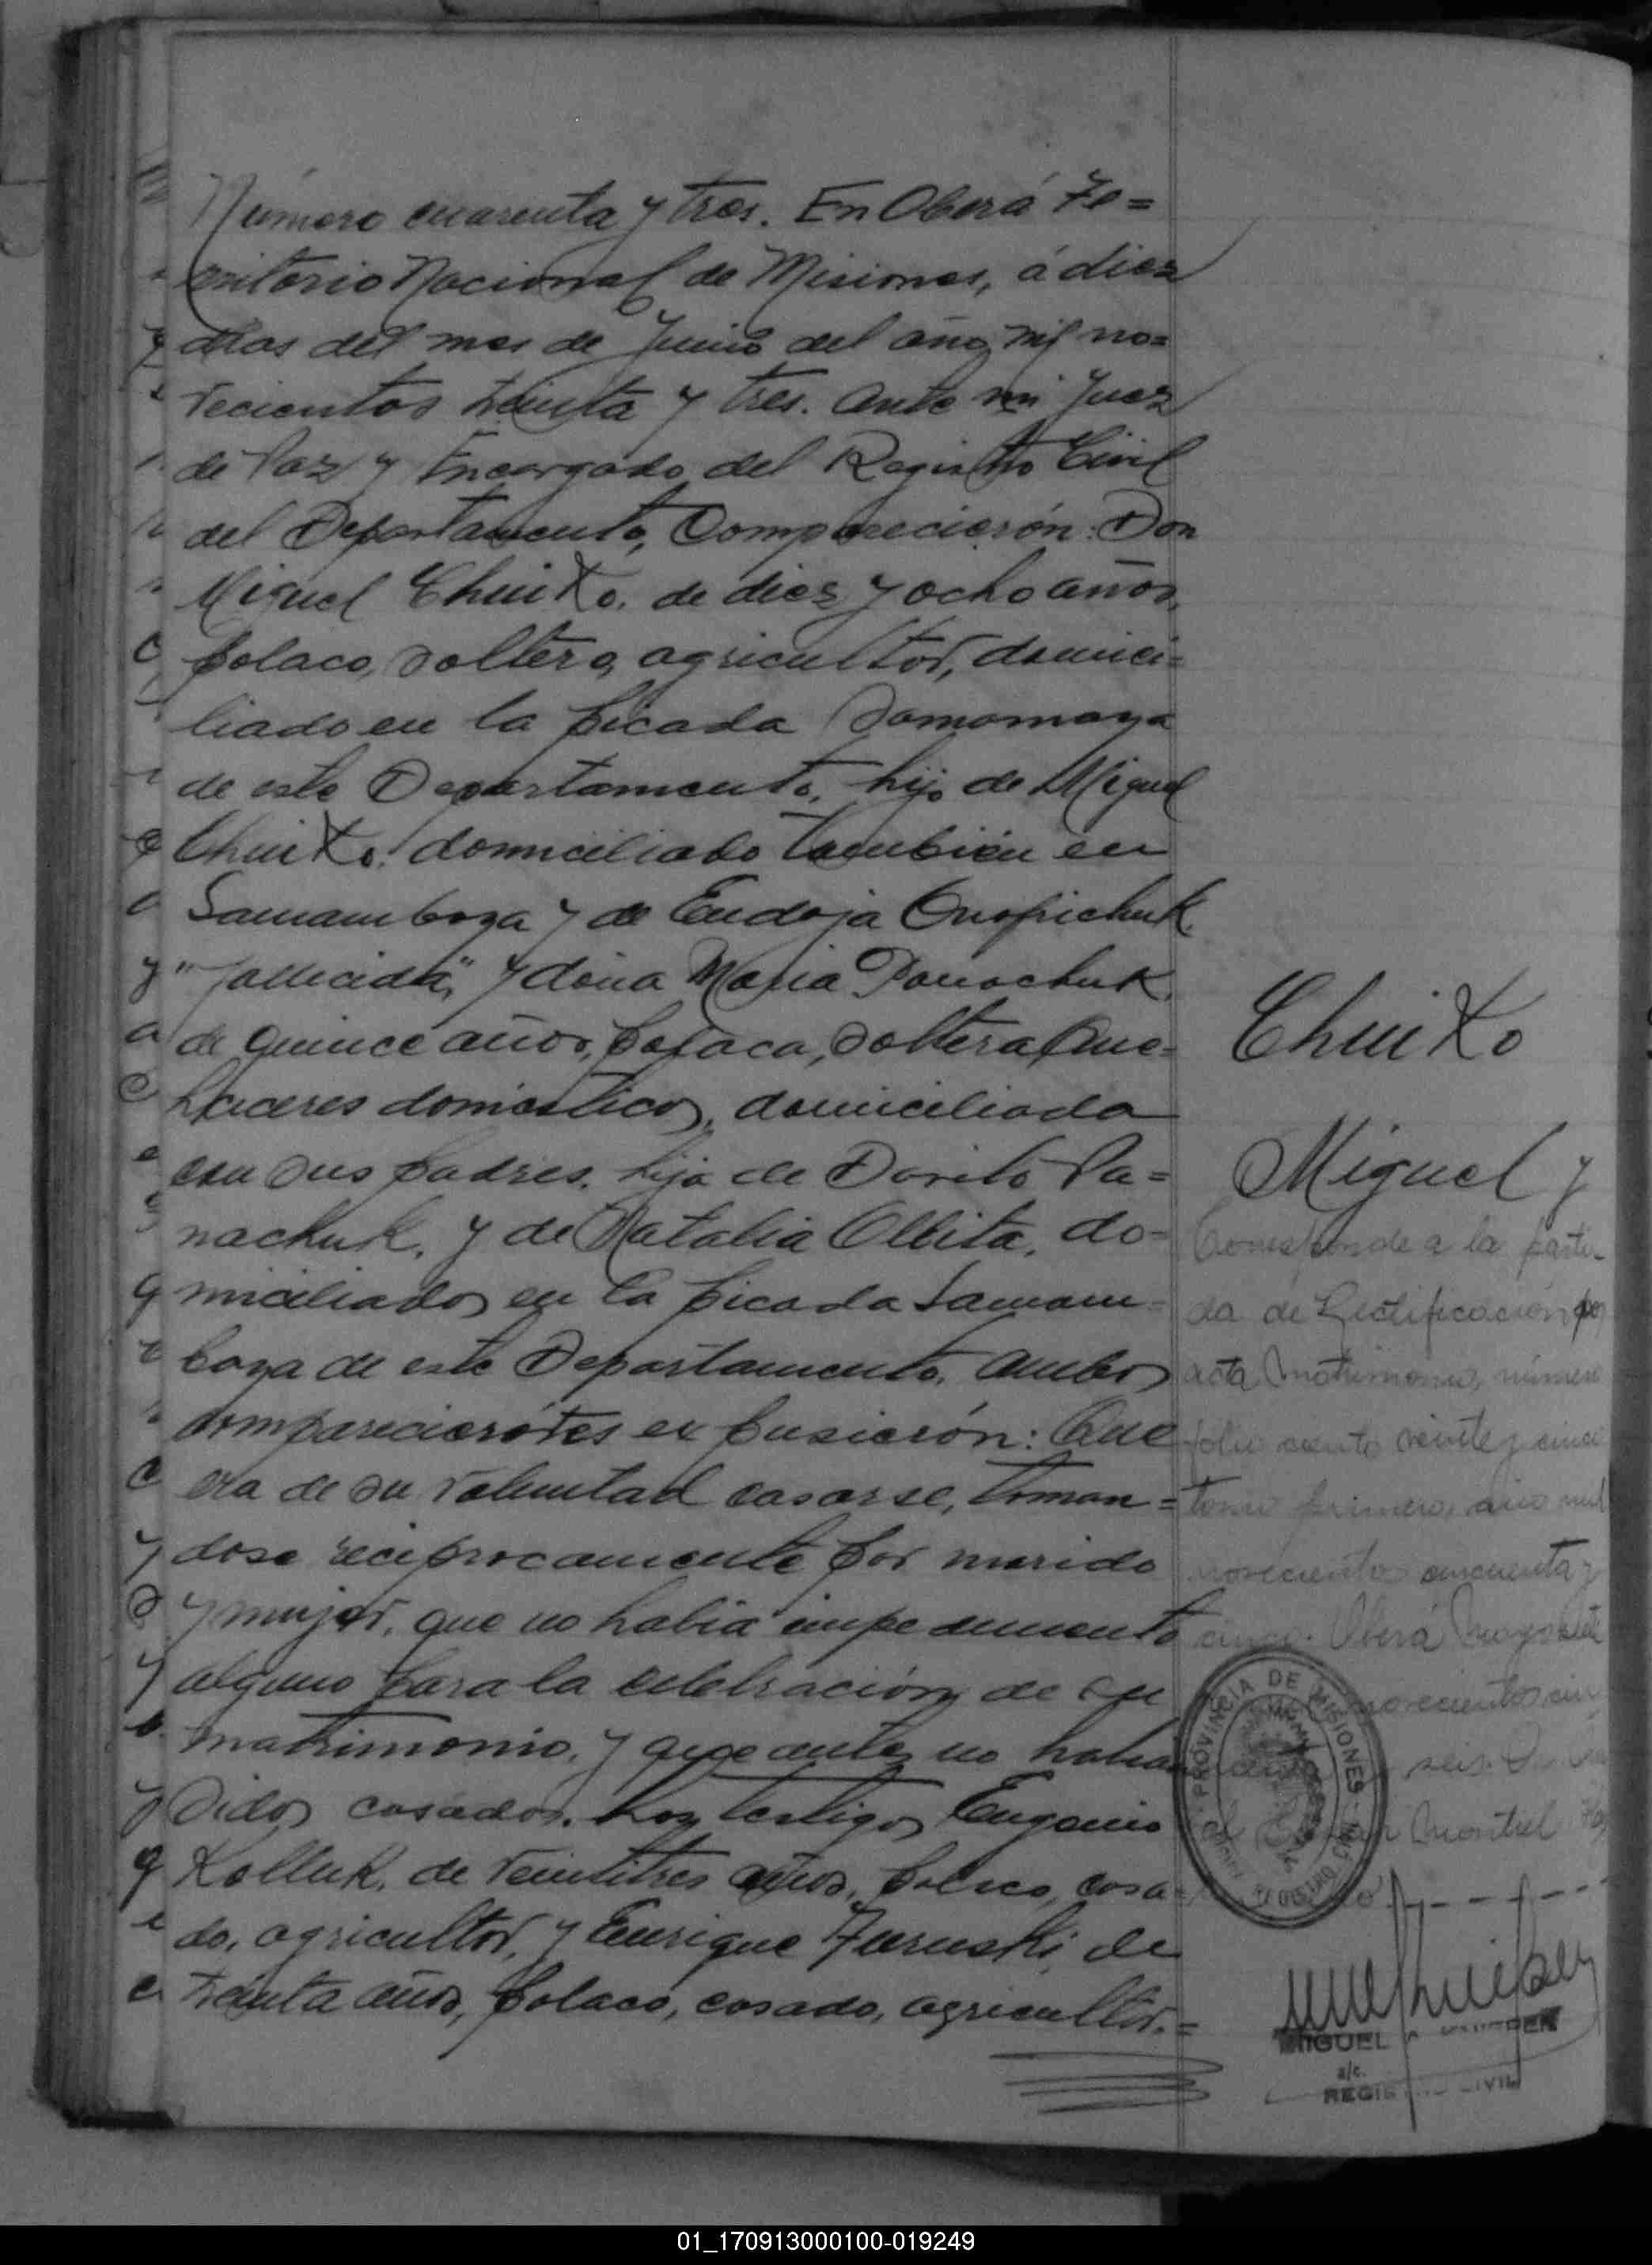 Número cuarenta y tres. En Oberá Te=
rritorio Nacional de Misiones, á diez
dias del mes de Junio del año mil no=
vecientos treinta y tres. Ante mi Juez
de Paz y Encargado del Registro Civil
del Departamento, Comparecierón: Don
Miguel Chuiko. de diez y ocho años,
polaco, soltero, agricultor, domici=
liado en la picada
de este Departamento, hijo de Miguel
Chuiko. domiciliado también en
Samambaya y de Eudoja Onopichuk.
"fallecida", y doña Maria Panachuk,
de quince años, polaca, soltera, Que=
haceres domesticos, domiciliada
con sus padres. hija de Pa=
nachuk. y de Natalia Olbita. do=
miciliados en la picada Samam=
baya de este Departamento. Ambos
expusierón: Que
era de su voluntad casarse, toman=
dose reciprocamente por marido
y mujer, que no habia impedimento
alguno para la celebración de su
matrimonio. y que antes no habian
sidos casados. Los testigos Eugenio
Kolluk. de veintitres años, polaco, casa=
do, agricultor, y Enrique de
treinta años, polaco, casado, agricultor.=
Chuiko
Miguel y
Corresponde a la parti-
da de Rectificación por
acta matrimonio, número
folio ciento veinte y cinco
tomo primero, año mil
novecientos cincuenta y
cinco. Oberá Mayo
novecientos cin
seis.
Montiel
PROVINCIA DE MISIONES
MIGUEL
a/c.
REGISTRO CIVIL
01_170913000100-019249